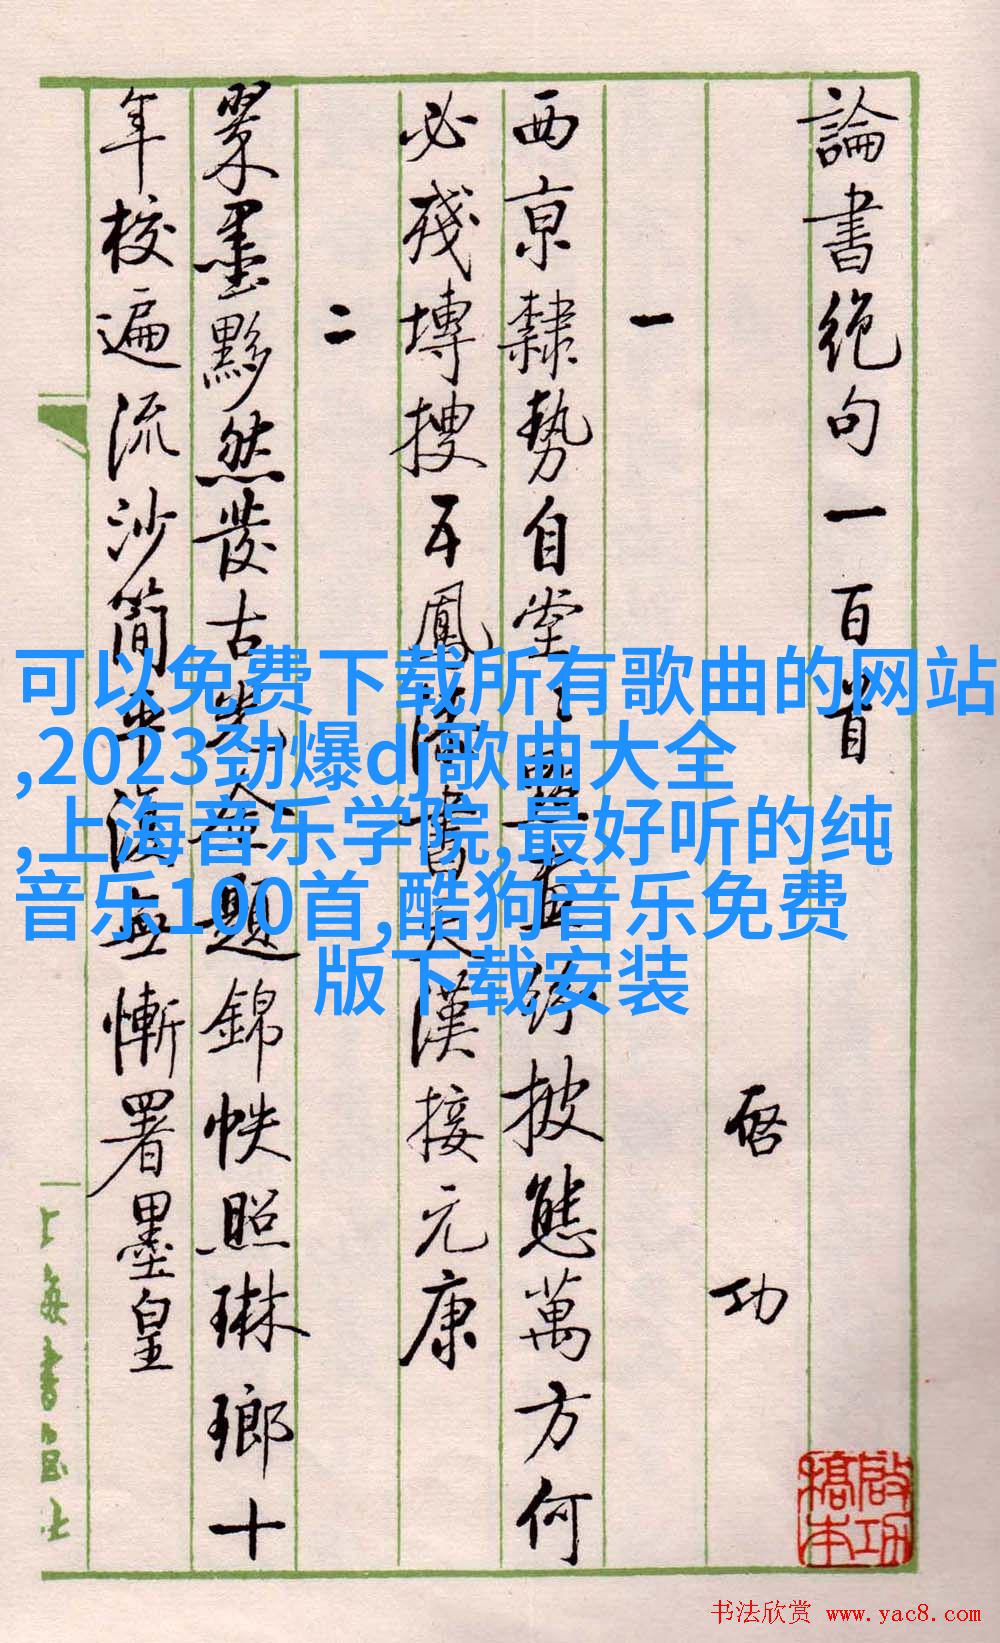 論書絶句一百首
启功
一
西京隸勢自堂〻點畫紛披態萬方何
必殘塼搜五鳳漆書天漢接元康
二
翠墨黟然發古光金題錦帙照琳瑯十
年校遍流沙簡平復無慚署墨皇
上海書画社
啟功稿本
可以免费下载所有歌曲的网站
,2023劲爆dj歌曲大全
,上海音乐学院,最好听的纯
音乐100首,酷狗音乐免费
版下载安装
书法欣赏 www.yac8.com